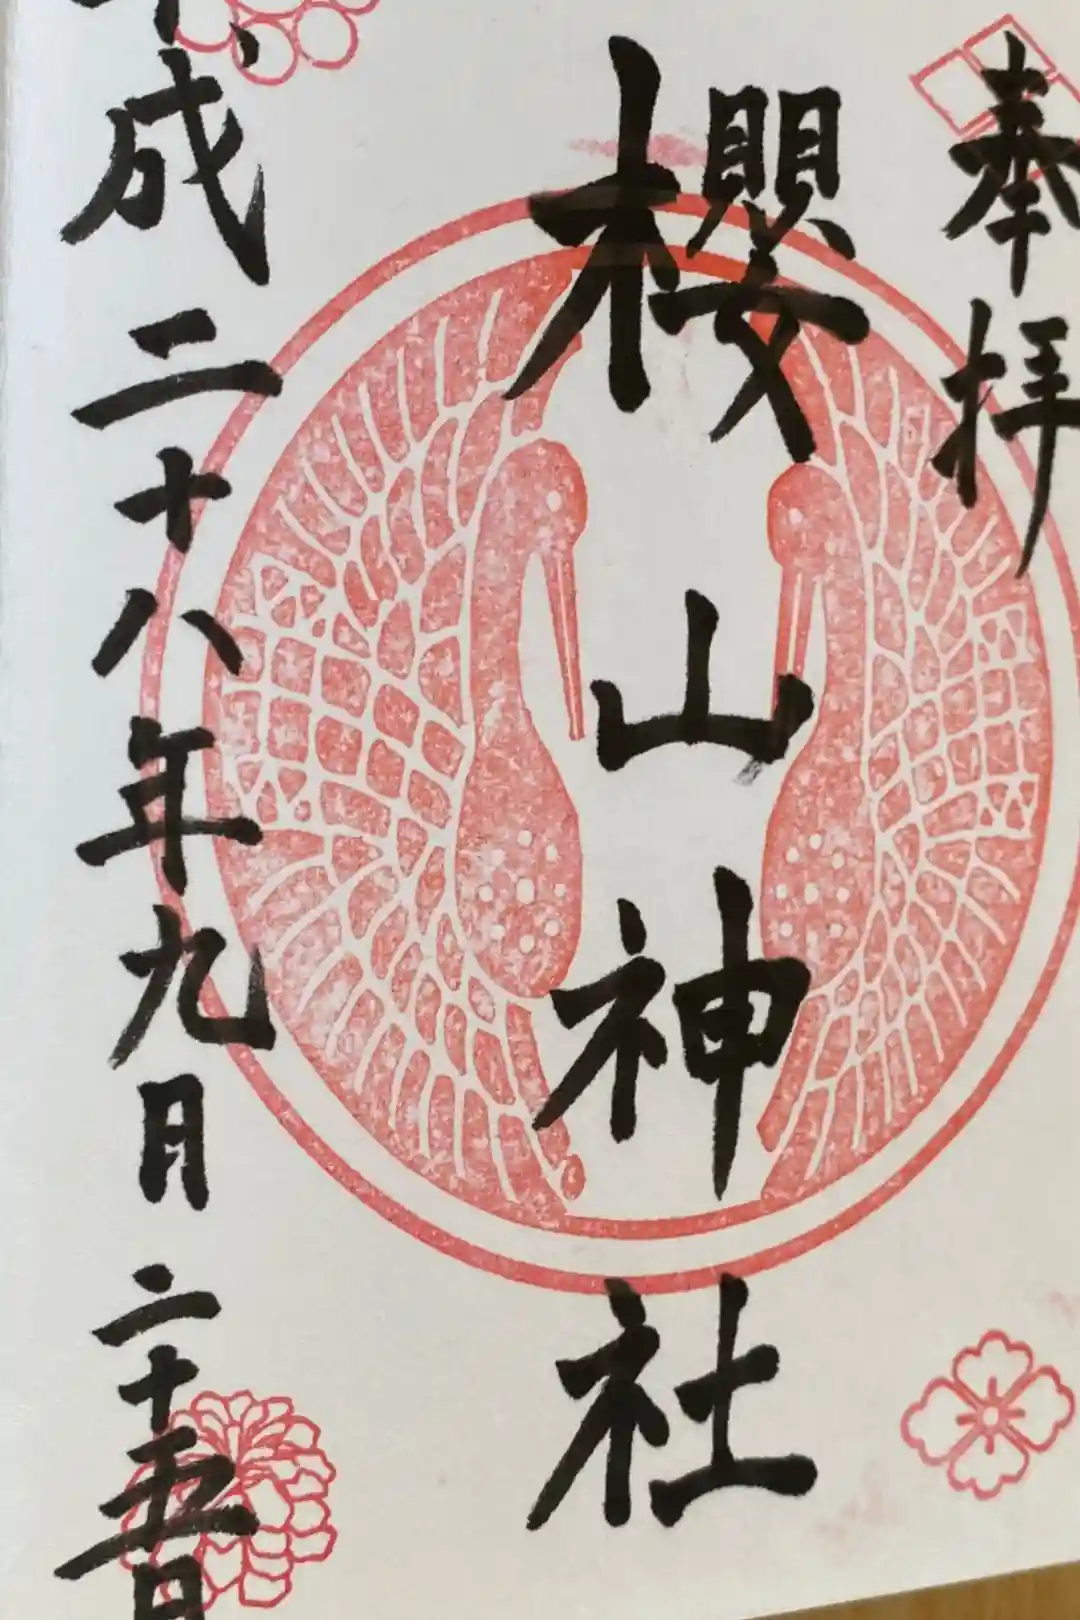 奉拝
櫻山神社
平成二十八年九月二十五日